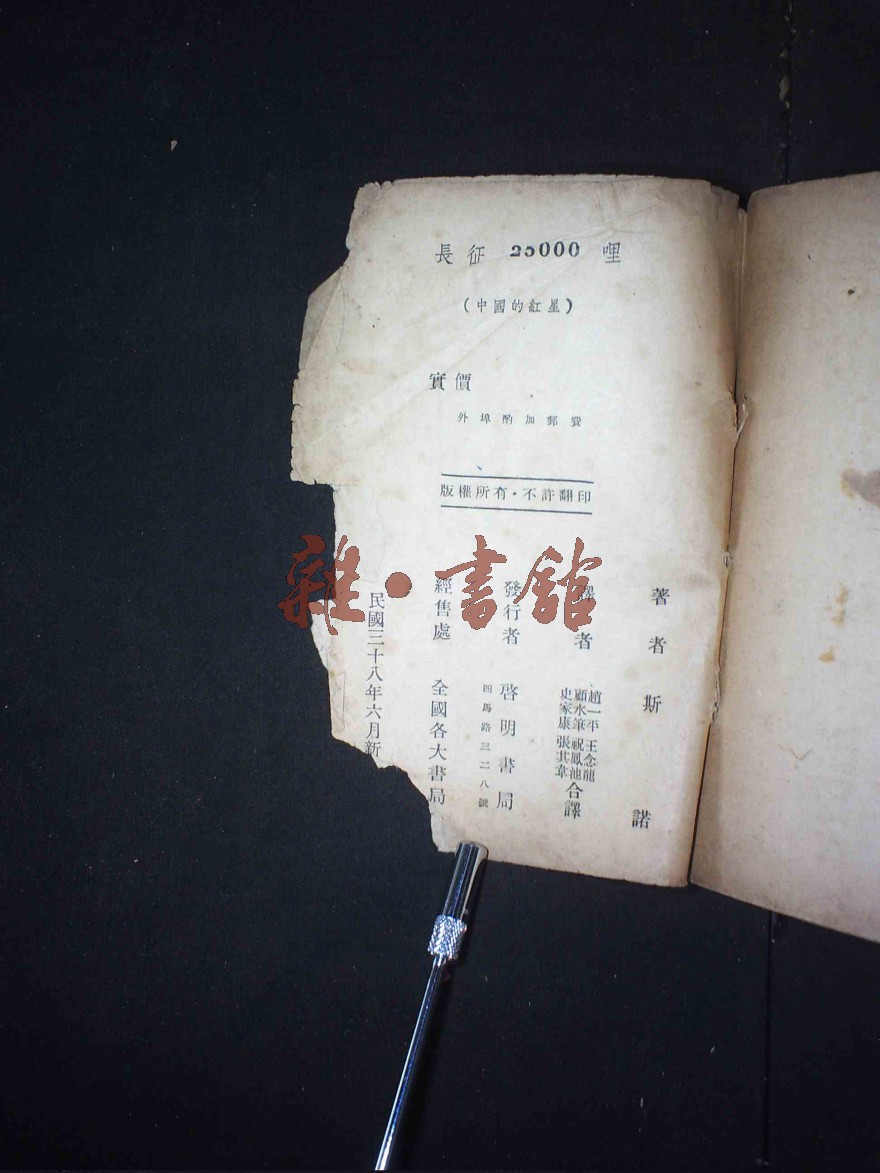 長征 25000 哩
(中國的紅星)
實價
外埠酌加郵費
版權所有・不許翻印
著者 斯諾
譯者 趙一平 王念龍
顧水筆 祝鳳池
史家康 張其韋
合譯
發行者 啓明書局
四馬路三二八號
經售處 全國各大書局
民國三十八年六月新
雜・書館